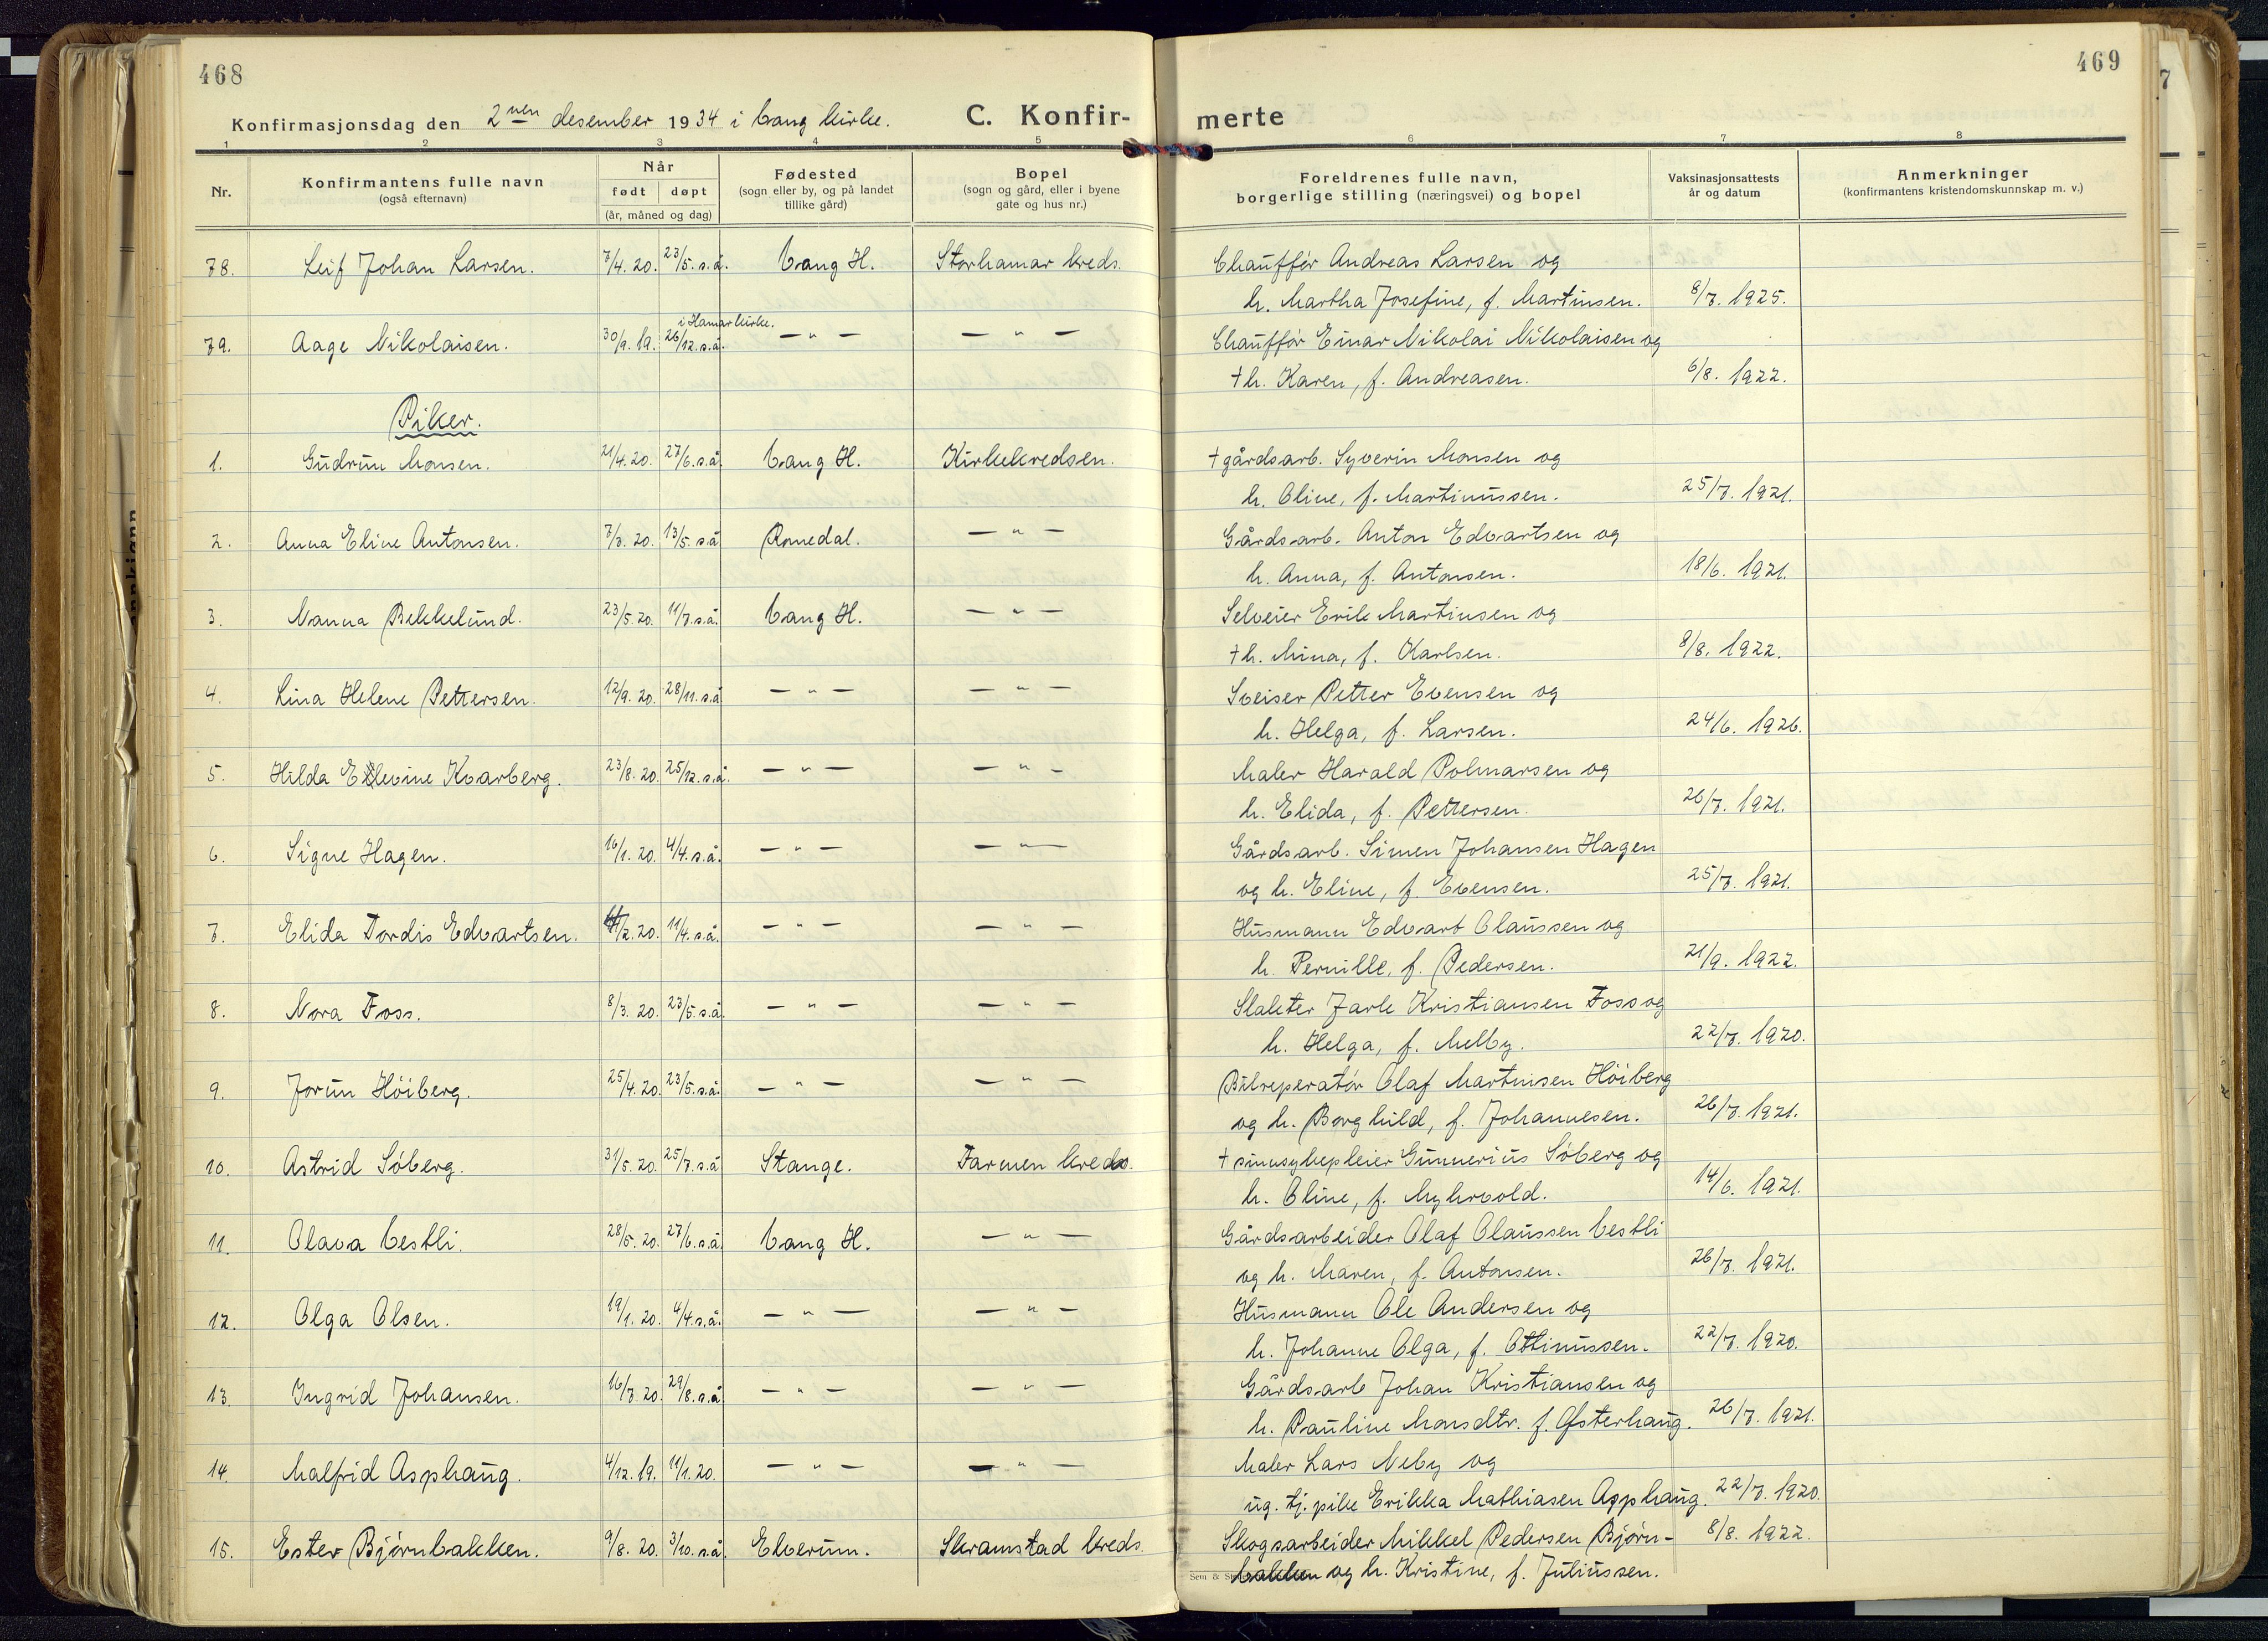 468
Konfirmasjonsdag den 2nen desember 1934 i Vang kirke.
C. Konfir-
1 2 3 4 5
Nr. Konfirmantens fulle navn (også efternavn) Når født døpt (år, måned og dag) Fødested (sogn eller by, og på landet tillike gård) Bopel (sogn og gård, eller i byene gate og hus nr.)
78. Leif Johan Larsen. 7/4. 20. 23/5. s.å. Vang H. Storhamar kreds.
i Hamar kirke.
79. Aage Nikolaisen. 30/9. 19. 26/12. s.å. — " — — " —
Piker.
1. Gudrun Monsen. 21/4. 20. 27/6. s.å. Vang H. Kirkekredsen.
2. Anna Eline Antonsen. 7/3. 20. 13/5. s.å. Romedal. — " —
3. Nanna Bekkelund. 23/5. 20. 11/7. s.å. Vang H. — " —
4. Lina Helene Pettersen. 12/9. 20. 28/11. s.å. — " — — " —
5. Hilda Elevine Kvarberg. 23/8. 20. 25/12. s.å. — " — — " —
6. Signe Hagen. 16/1. 20. 4/4. s.å. — " — — " —
7. Elida Tordis Edvartsen. /2. 20. 11/4. s.å. — " — — " —
8. Nora Foss. 8/3. 20. 23/5. s.å. — " — — " —
9. Jorun Höiberg. 25/4. 20. 23/5. s.å. — " — — " —
10. Astrid Söberg. 31/5. 20. 25/7. s.å. Stange. Farmen kreds.
11. Olava Vestli. 28/5. 20. 27/6. s.å. Vang H. — " —
12. Olga Olsen. 19/1. 20. 4/4. s.å. — " — — " —
13. Ingrid Johansen. 16/7. 20. 29/8. s.å. — " — — " —
14. Malfrid Asphaug. 4/12. 19. 11/1. 20. — " — — " —
15. Ester Bjørnbakken. 9/8. 20. 3/10. s.å. Elverum. Skramstad kreds.
469
merte
6 7 8
Foreldrenes fulle navn, borgerlige stilling (næringsvei) og bopel Vaksinasjonsattests år og datum Anmerkninger (konfirmantens kristendomskunnskap m. v.)
Chauffør Andreas Larsen og
h. Martha Josefine, f. Martinsen. 8/7. 1925.
Chauffør Einar Nikolai Nikolaisen og
† h. Karen, f. Andreasen. 6/8. 1922.
† gårdsarb. Syverin Monsen og
h. Oline, f. Martinussen. 25/7. 1921.
Gårdsarb. Anton Edvartsen og
h. Anna, f. Antonsen. 18/6. 1921.
Selveier Erik Martinsen og
† h. Mina, f. Karlsen. 8/8. 1922.
Sveiser Petter Evensen og
h. Helga, f. Larsen. 24/6. 1926.
Maler Harald Polmarsen og
h. Elida, f. Pettersen. 26/7. 1921.
Gårdsarb. Simen Johansen Hagen
og h. Eline, f. Evensen. 25/7. 1921.
Husmann Edvart Olaussen og
h. Pernille, f. Pedersen. 21/9. 1922.
Slakter Jarle Kristiansen Foss og
h. Helga, f. Melby. 22/7. 1920.
Bilreperatør Olaf Martinsen Höiberg
og h. Borghild, f. Johannesen. 26/7. 1921.
† sinnsykepleier Gunnerius Söberg og
h. Oline, f. Myhrvold. 14/6. 1921.
Gårdsarbeider Olaf Olaussen Vestli
og h. Maren, f. Antonsen. 26/7. 1921.
Husmann Ole Andersen og
h. Johanne Olga, f. Ottinussen. 22/7. 1920.
Gårdsarb Johan Kristiansen og
h. Pauline Monsdtr. f. Østerhaug. 26/7. 1921.
Maler Lars Neby og
ug. tj. pike Erikka Mathiasen Asphaug. 22/7. 1920.
Skogsarbeider Mikkel Pedersen Bjørn- 8/8. 1922.
bakken og h. Kristine, f. Juliussen.
Sem &